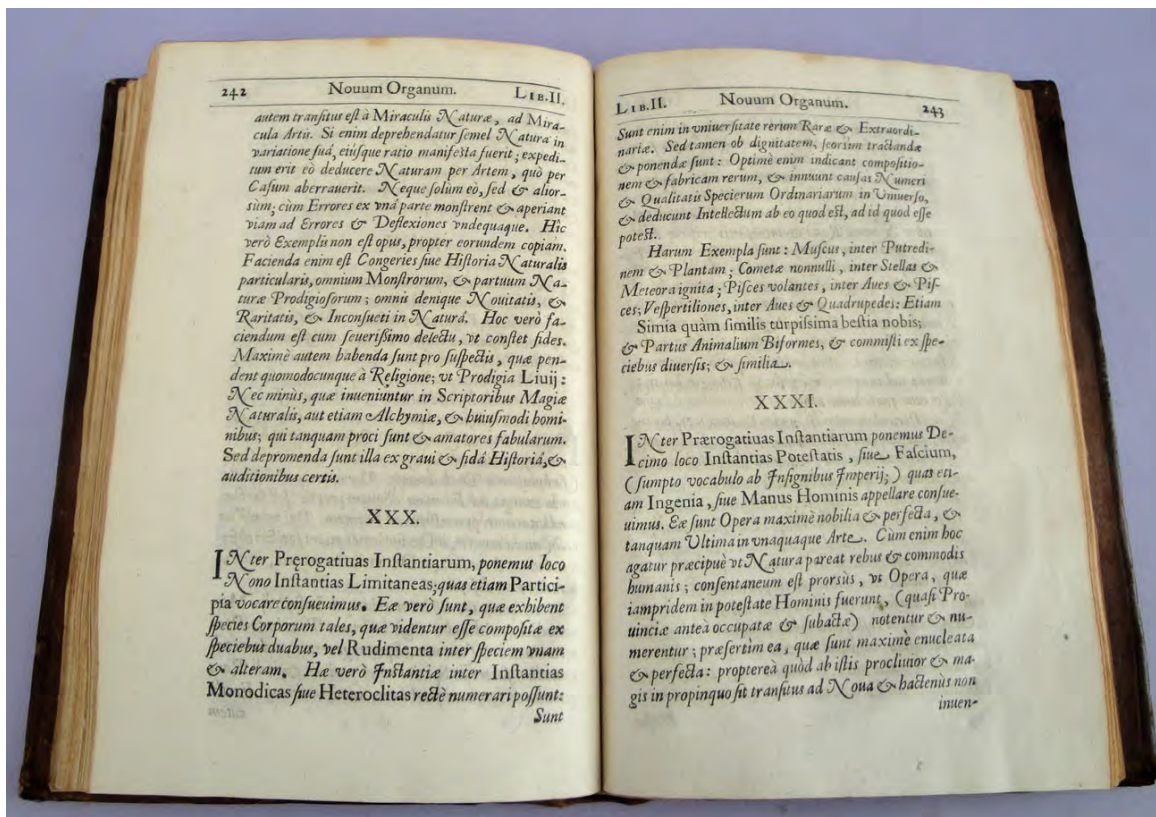 242 Nouum Organum. LIB.II.
autem transitus est à Miraculis Naturæ, ad Mira-
cula Artis. Si enim deprehendatur semel Natura in
variatione suâ, eiúsque ratio manifesta fuerit; expedi-
tum erit eò deducere Naturam per Artem, quò per
Casum aberrauerit. Neque solùm eò, sed & alior-
sùm; cùm Errores ex vnâ parte monstrent & aperiant
viam ad Errores & Deflexiones vndequaque. Hîc
verò Exemplis non est opus, propter eorundem copiam.
Facienda enim est Congeries siue Historia Naturalis
particularis, omnium Monstrorum, & partuum Na-
turæ Prodigiosorum; omnis denique Nouitatis, &
Raritatis, & Inconsueti in Naturâ. Hoc verò fa-
ciendum est cum seuerissimo delectu, vt constet fides.
Maximè autem habenda sunt pro suspectis, quæ pen-
dent quomodocunque à Religione; vt Prodigia Liuij:
Nec minùs, quæ inueniuntur in Scriptoribus Magiæ
Naturalis, aut etiam Alchymiæ, & huiusmodi homi-
nibus; qui tanquam proci sunt & amatores fabularum.
Sed depromenda sunt illa ex graui & fidâ Historiâ, &
auditionibus certis.
XXX.
INter Pręrogatiuas Instantiarum, ponemus loco
Nono Instantias Limitaneas; quas etiam Partici-
pia vocare consueuimus. Eæ verò sunt, quæ exhibent
species Corporum tales, quæ videntur esse compositæ ex
speciebus duabus, vel Rudimenta inter speciem vnam
& alteram. Hæ verò Instantiæ inter Instantias
Monodicas siue Heteroclitas rectè numerari possunt:
Sunt
LIB.II. Nouum Organum. 243
Sunt enim in vniuersitate rerum Raræ & Extraordi-
nariæ. Sed tamen ob dignitatem, seorsim tractandæ
& ponendæ sunt: Optimè enim indicant compositio-
nem & fabricam rerum, & innuunt causas Numeri
& Qualitatis Specierum Ordinariarum in Vniuerso,
& deducunt Intellectum ab eo quod est, ad id quod esse
potest.
Harum Exempla sunt: Muscus, inter Putredi-
nem & Plantam; Cometæ nonnulli, inter Stellas &
Meteora ignita; Pisces volantes, inter Aues & Pis-
ces; Vespertiliones, inter Aues & Quadrupedes: Etiam
Simia quàm similis turpissima bestia nobis;
& Partus Animalium Biformes, & commisti ex spe-
ciebus diuersis; & similia.
XXXI.
INter Prærogatiuas Instantiarum ponemus De-
cimo loco Instantias Potestatis, siue Fascium,
(sumpto vocabulo ab Insignibus Imperij;) quas eti-
am Ingenia, siue Manus Hominis appellare consue-
uimus. Eæ sunt Opera maximè nobilia & perfecta, &
tanquam Vltima in vnaquaque Arte. Cùm enim hoc
agatur præcipuè vt Natura pareat rebus & commodis
humanis; consentaneum est prorsùs, vt Opera, quæ
iampridem in potestate Hominis fuerunt, (quasi Pro-
uinciæ anteà occupatæ & subactæ) notentur & nu-
merentur; præsertim ea, quæ sunt maximè enucleata
& perfecta: proptereà quòd ab istis procliuior & ma-
gis in propinquo sit transitus ad Noua & hactenùs non
inuen-